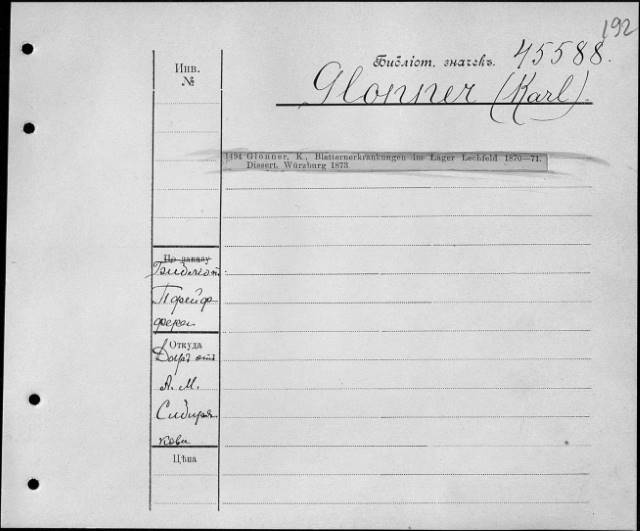 192
Инв.
№
Библіот. значекъ. 45588.
Glonner (Karl).
1494 Glonner, K., Blatternerkrankungen im Lager Lechfeld 1870—71.
Dissert. Würzburg 1873.
По заказу
Библіот.
Пфейф
фера
Откуда
Даръ отъ
А. М.
Сибиря
кова
Цѣна